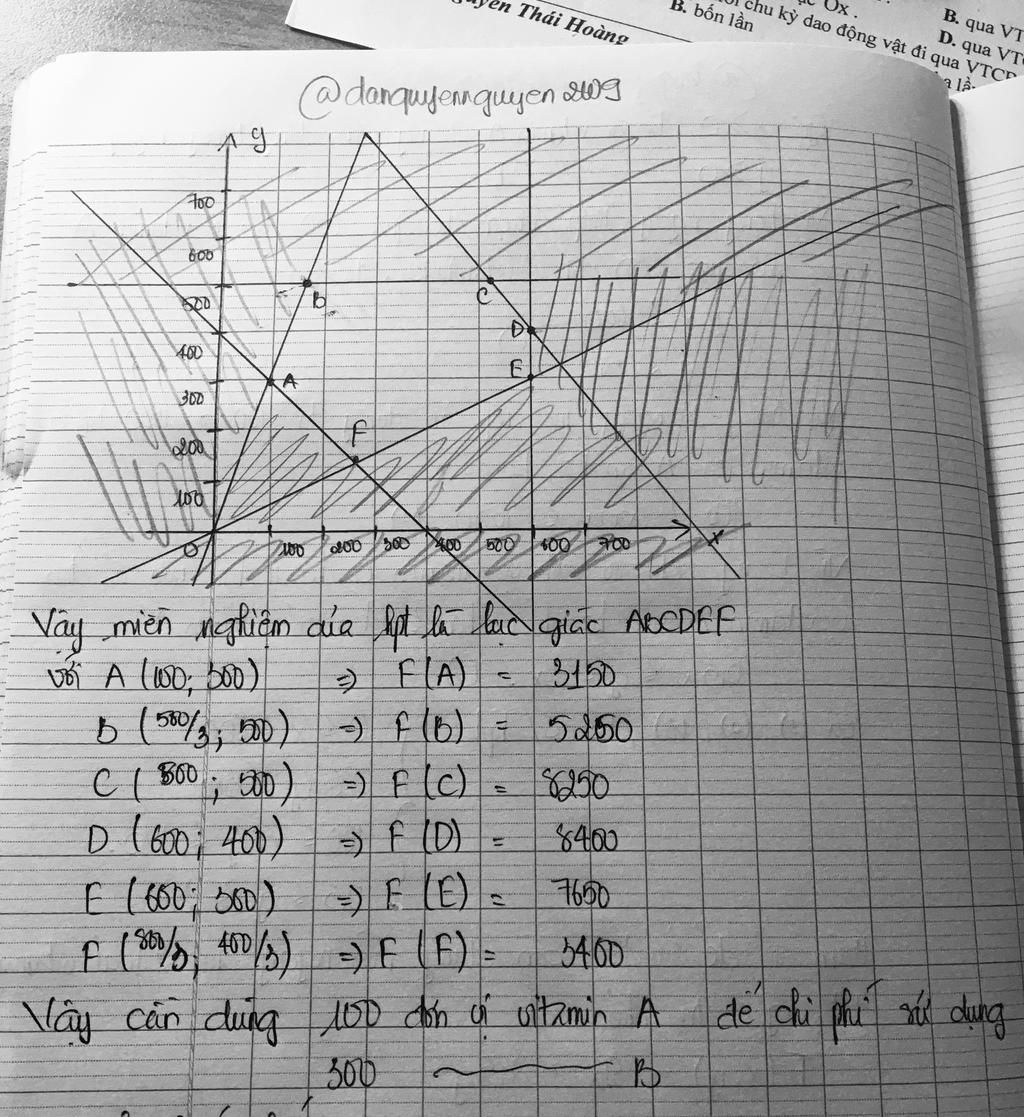 ục Ox .
chu kỳ dao động vật đi qua VTCB
B. bốn lần
B. qua VT
D. qua VT
Nguyễn Thái Hoàng
@danquyennguyen2009
y
700
600
500
400
300
200
100
B
C
D
A
E
F
O
100 200 300 400 500 600 700
x
Vậy miền nghiệm của hpt là lục giác ABCDEF
với A (100; 300) => F(A) = 3150
B (500/3; 500) => F(B) = 5250
C (500; 500) => F(C) = 8250
D (600; 400) => F(D) = 8400
E (600; 300) => F(E) = 7650
F (800/3; 400/3) => F(F) = 3400
Vậy cần dùng 100 đơn vị vitamin A để chi phí sử dụng
300 B